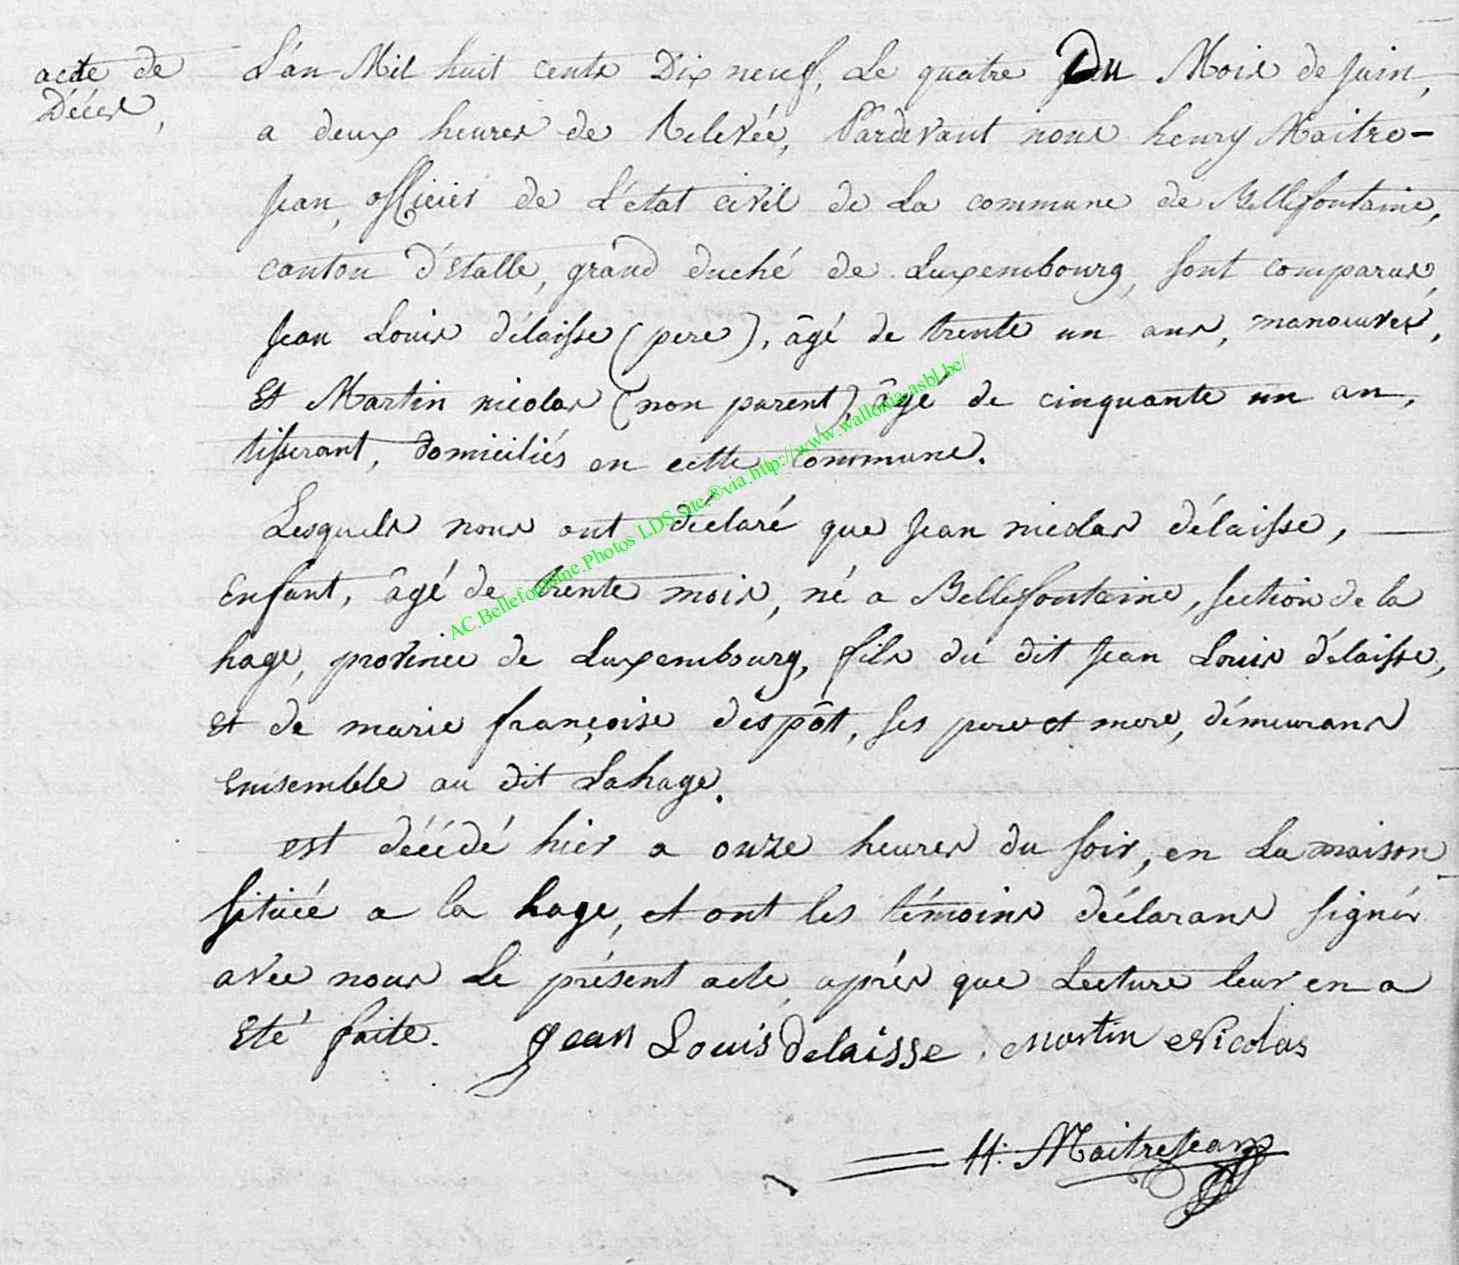 acte de
Décés,
L'an Mil huit cents Dix neuf, Le quatre Du Mois de Juin,
a deux heures de Relevée, Pardevant nous henry Maitre-
Jean, officier de L'état civil de La commune de Bellefontaine,
canton d'Etalle, grand duché de Luxembourg, sont comparus,
Jean Louis délaisse (pere), âgé de trente un ans, manoeuvré,
Et Martin nicolas (non parent), âgé de cinquante un an,
tisserant, domiciliés en cette commune.
Lesquels nous ont déclaré que Jean nicolas délaisse,
Enfant, âgé de trente mois, né a Bellefontaine, section de la
hage, province de Luxembourg, fils du dit Jean Louis délaisse,
et de marie françoise despôt, ses pere et mere, démeurans
Ensemble au dit Lahage.
est décédé hier a onze heures du soir, en La maison
située a la hage, et ont les témoins déclarans signés
avec nous Le présent acte, aprés que Lecture leur en a
Eté faite. Jean Louis delaisse. Martin Nicolas
H. MaitreJean
AC.Bellefontaine.Photos LDS.site.®via.http://www.wallonia-asbl.be/